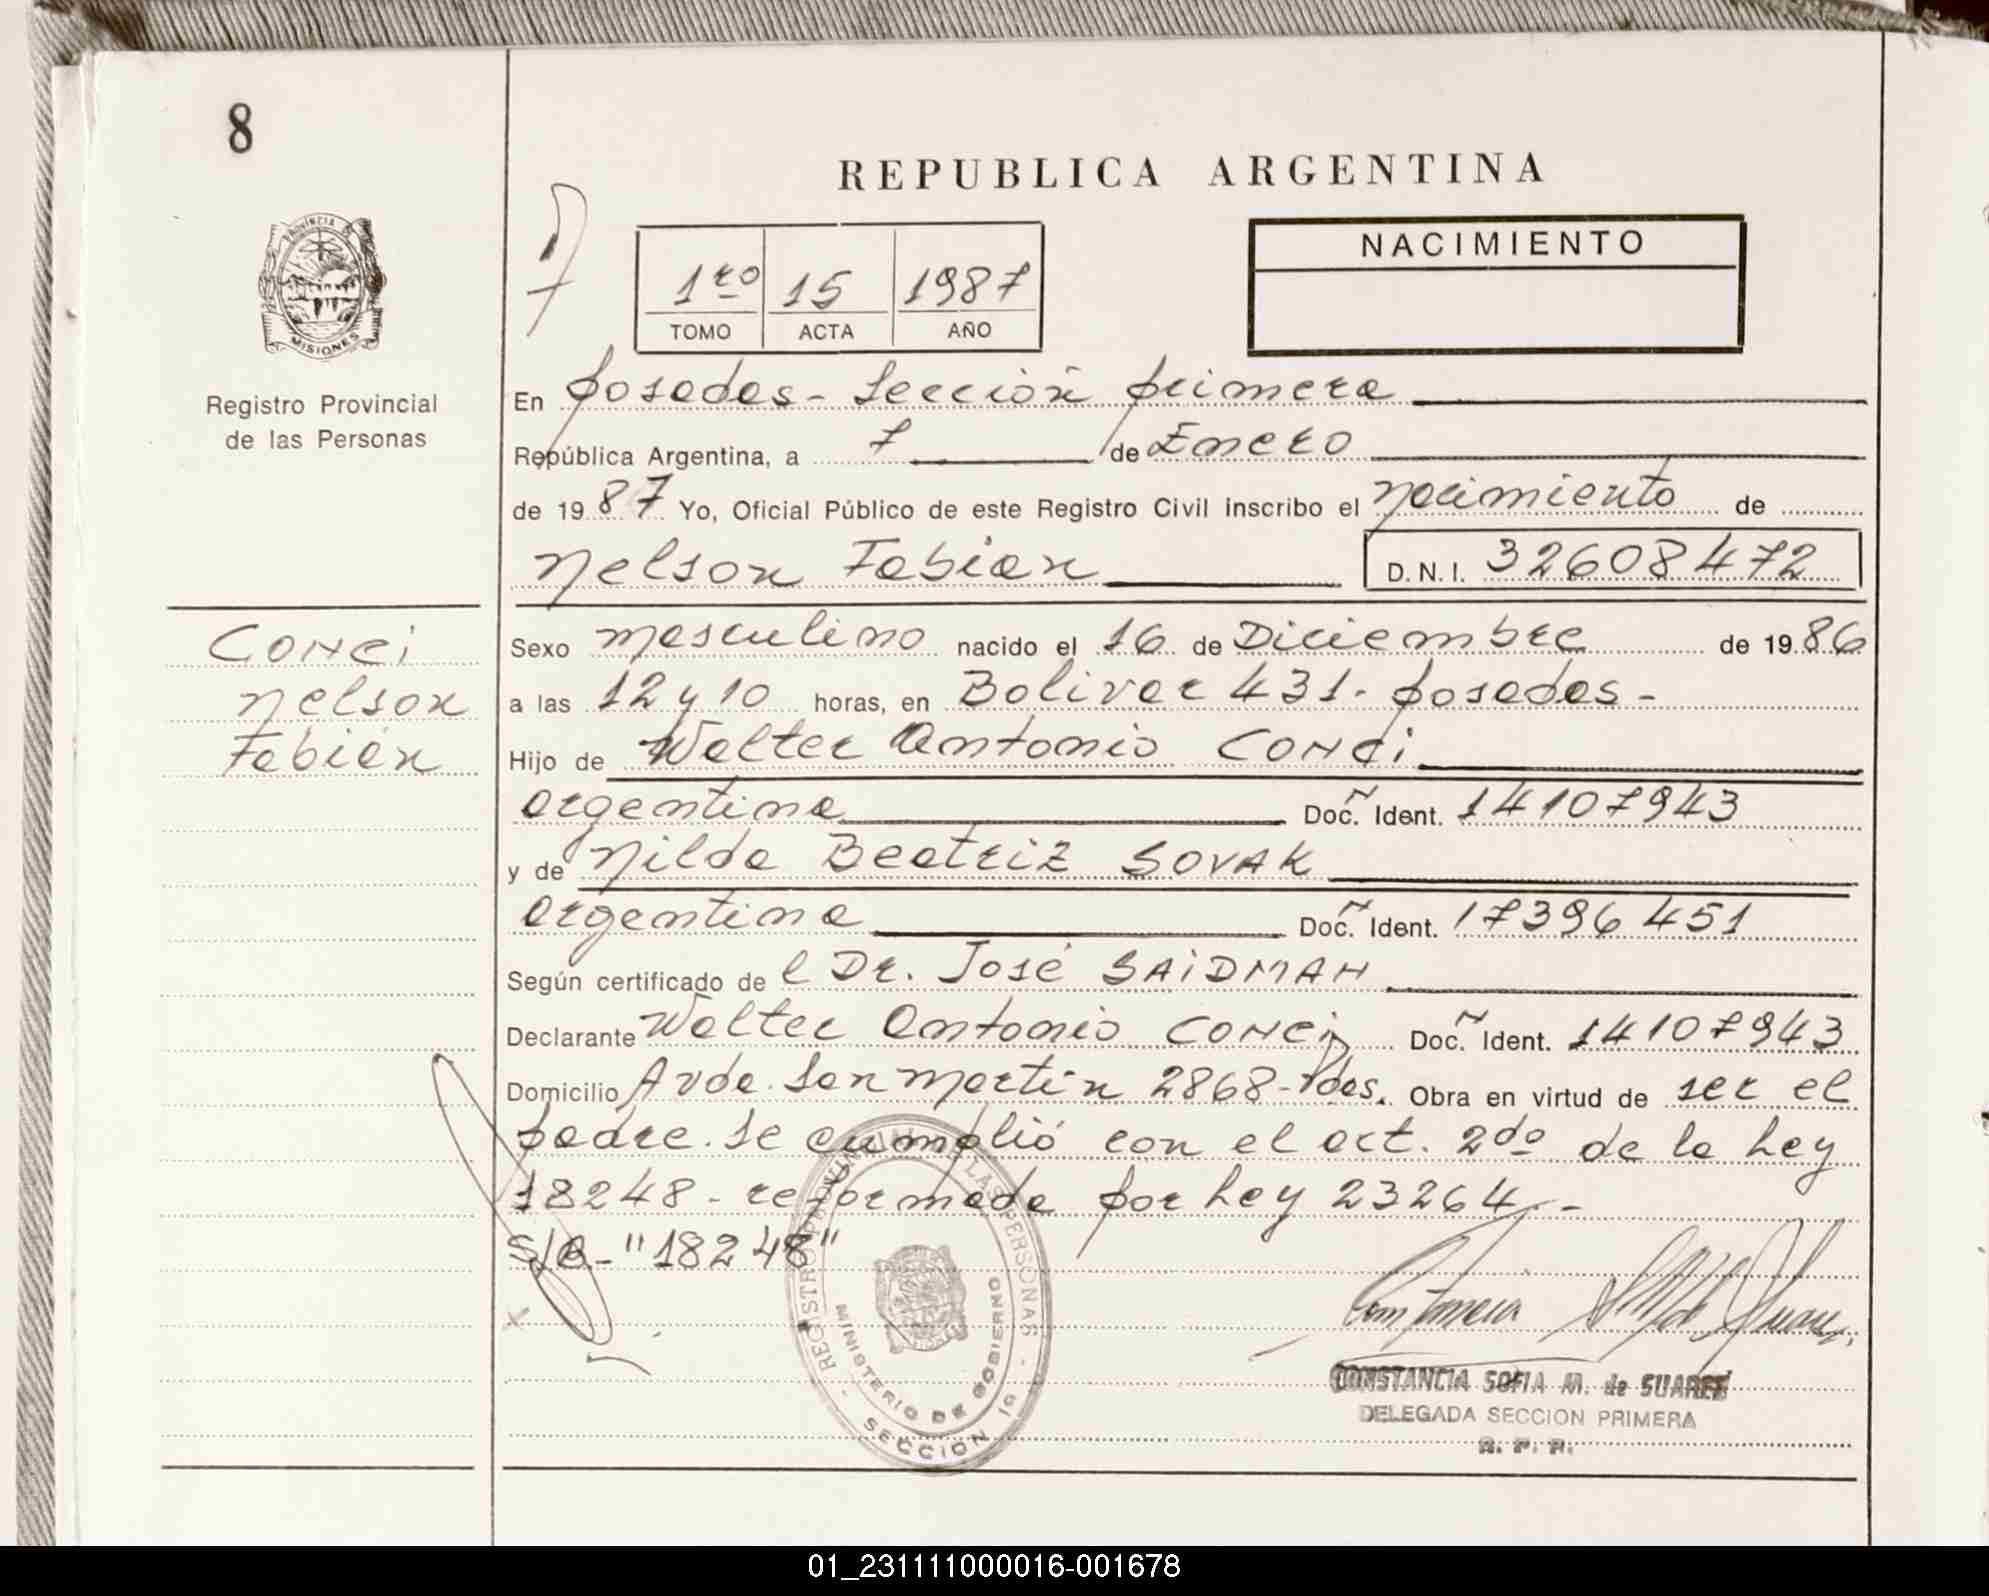 8
REPUBLICA ARGENTINA
PROVINCIA
MISIONES
Registro Provincial
de las Personas
1ro 15 1987
TOMO ACTA AÑO
NACIMIENTO
En Posadas - Sección primera
República Argentina, a 7 de Enero
de 1987 Yo, Oficial Público de este Registro Civil inscribo el nacimiento de
Nelson Fabian D.N.I. 32608472
CONCi
Nelson
Fabián
Sexo masculino nacido el 16 de Diciembre de 1986
a las 12 y 10 horas, en Bolivar 431. Posadas -
Hijo de Walter Antonio CONCi
argentina Doc. Ident. 14107943
y de Nilda Beatriz SOVAK
argentina Doc. Ident. 17396451
Según certificado de l Dr. José SAiDMAN
Declarante Walter Antonio CONCi Doc. Ident. 14107943
Domicilio Avda. San Martín 2868 - Pdas. Obra en virtud de ser el
padre. Se cumplió con el art. 2do de la Ley
18248 - reformada por Ley 23264. -
S/B - "18248"
REGISTRO PROVINCIAL DE LAS PERSONAS
MINISTERIO DE GOBIERNO
SECCION 1a
CONSTANCIA SOFIA M. de SUAREZ
DELEGADA SECCION PRIMERA
R. P. P.
01_231111000016-001678